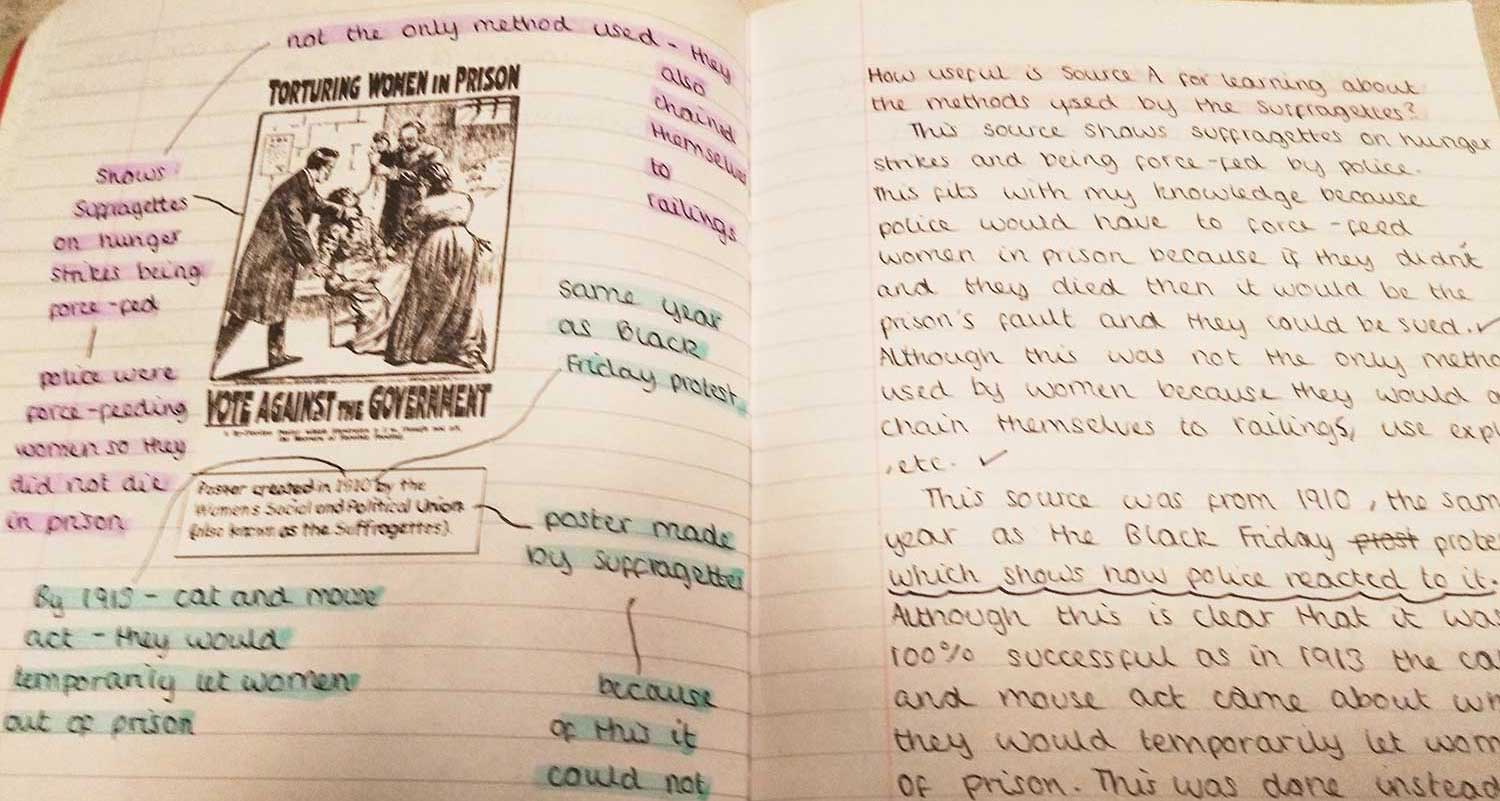 not the only method used - they
also
chained
themselves
to
railings
TORTURING WOMEN IN PRISON
VOTE AGAINST THE GOVERNMENT
shows
suffragettes
on hunger
strikes being
force-fed
police were
force-feeding
women so they
did not die
in prison
same year
as Black
Friday protest
Poster created in 1910 by the
Women's Social and Political Union
(also known as the Suffragettes).
poster made
by suffragettes
because
of this it
could not
By 1913 - cat and mouse
act - they would
temporarily let women
out of prison
How useful is Source A for learning about
the methods used by the suffragettes?
This source shows suffragettes on hunger
strikes and being force-fed by police.
This fits with my knowledge because
police would have to force-feed
women in prison because if they didn't
and they died then it would be the
prison's fault and they could be sued.
Although this was not the only
used by women because they would
chain themselves to railings, use
, etc.
This source was from 1910, the
year as the Black Friday
which shows how police reacted to it.
Although this is clear that it
100% successful as in 1913 the
and mouse act came about
they would temporarily let
of prison. This was done instead